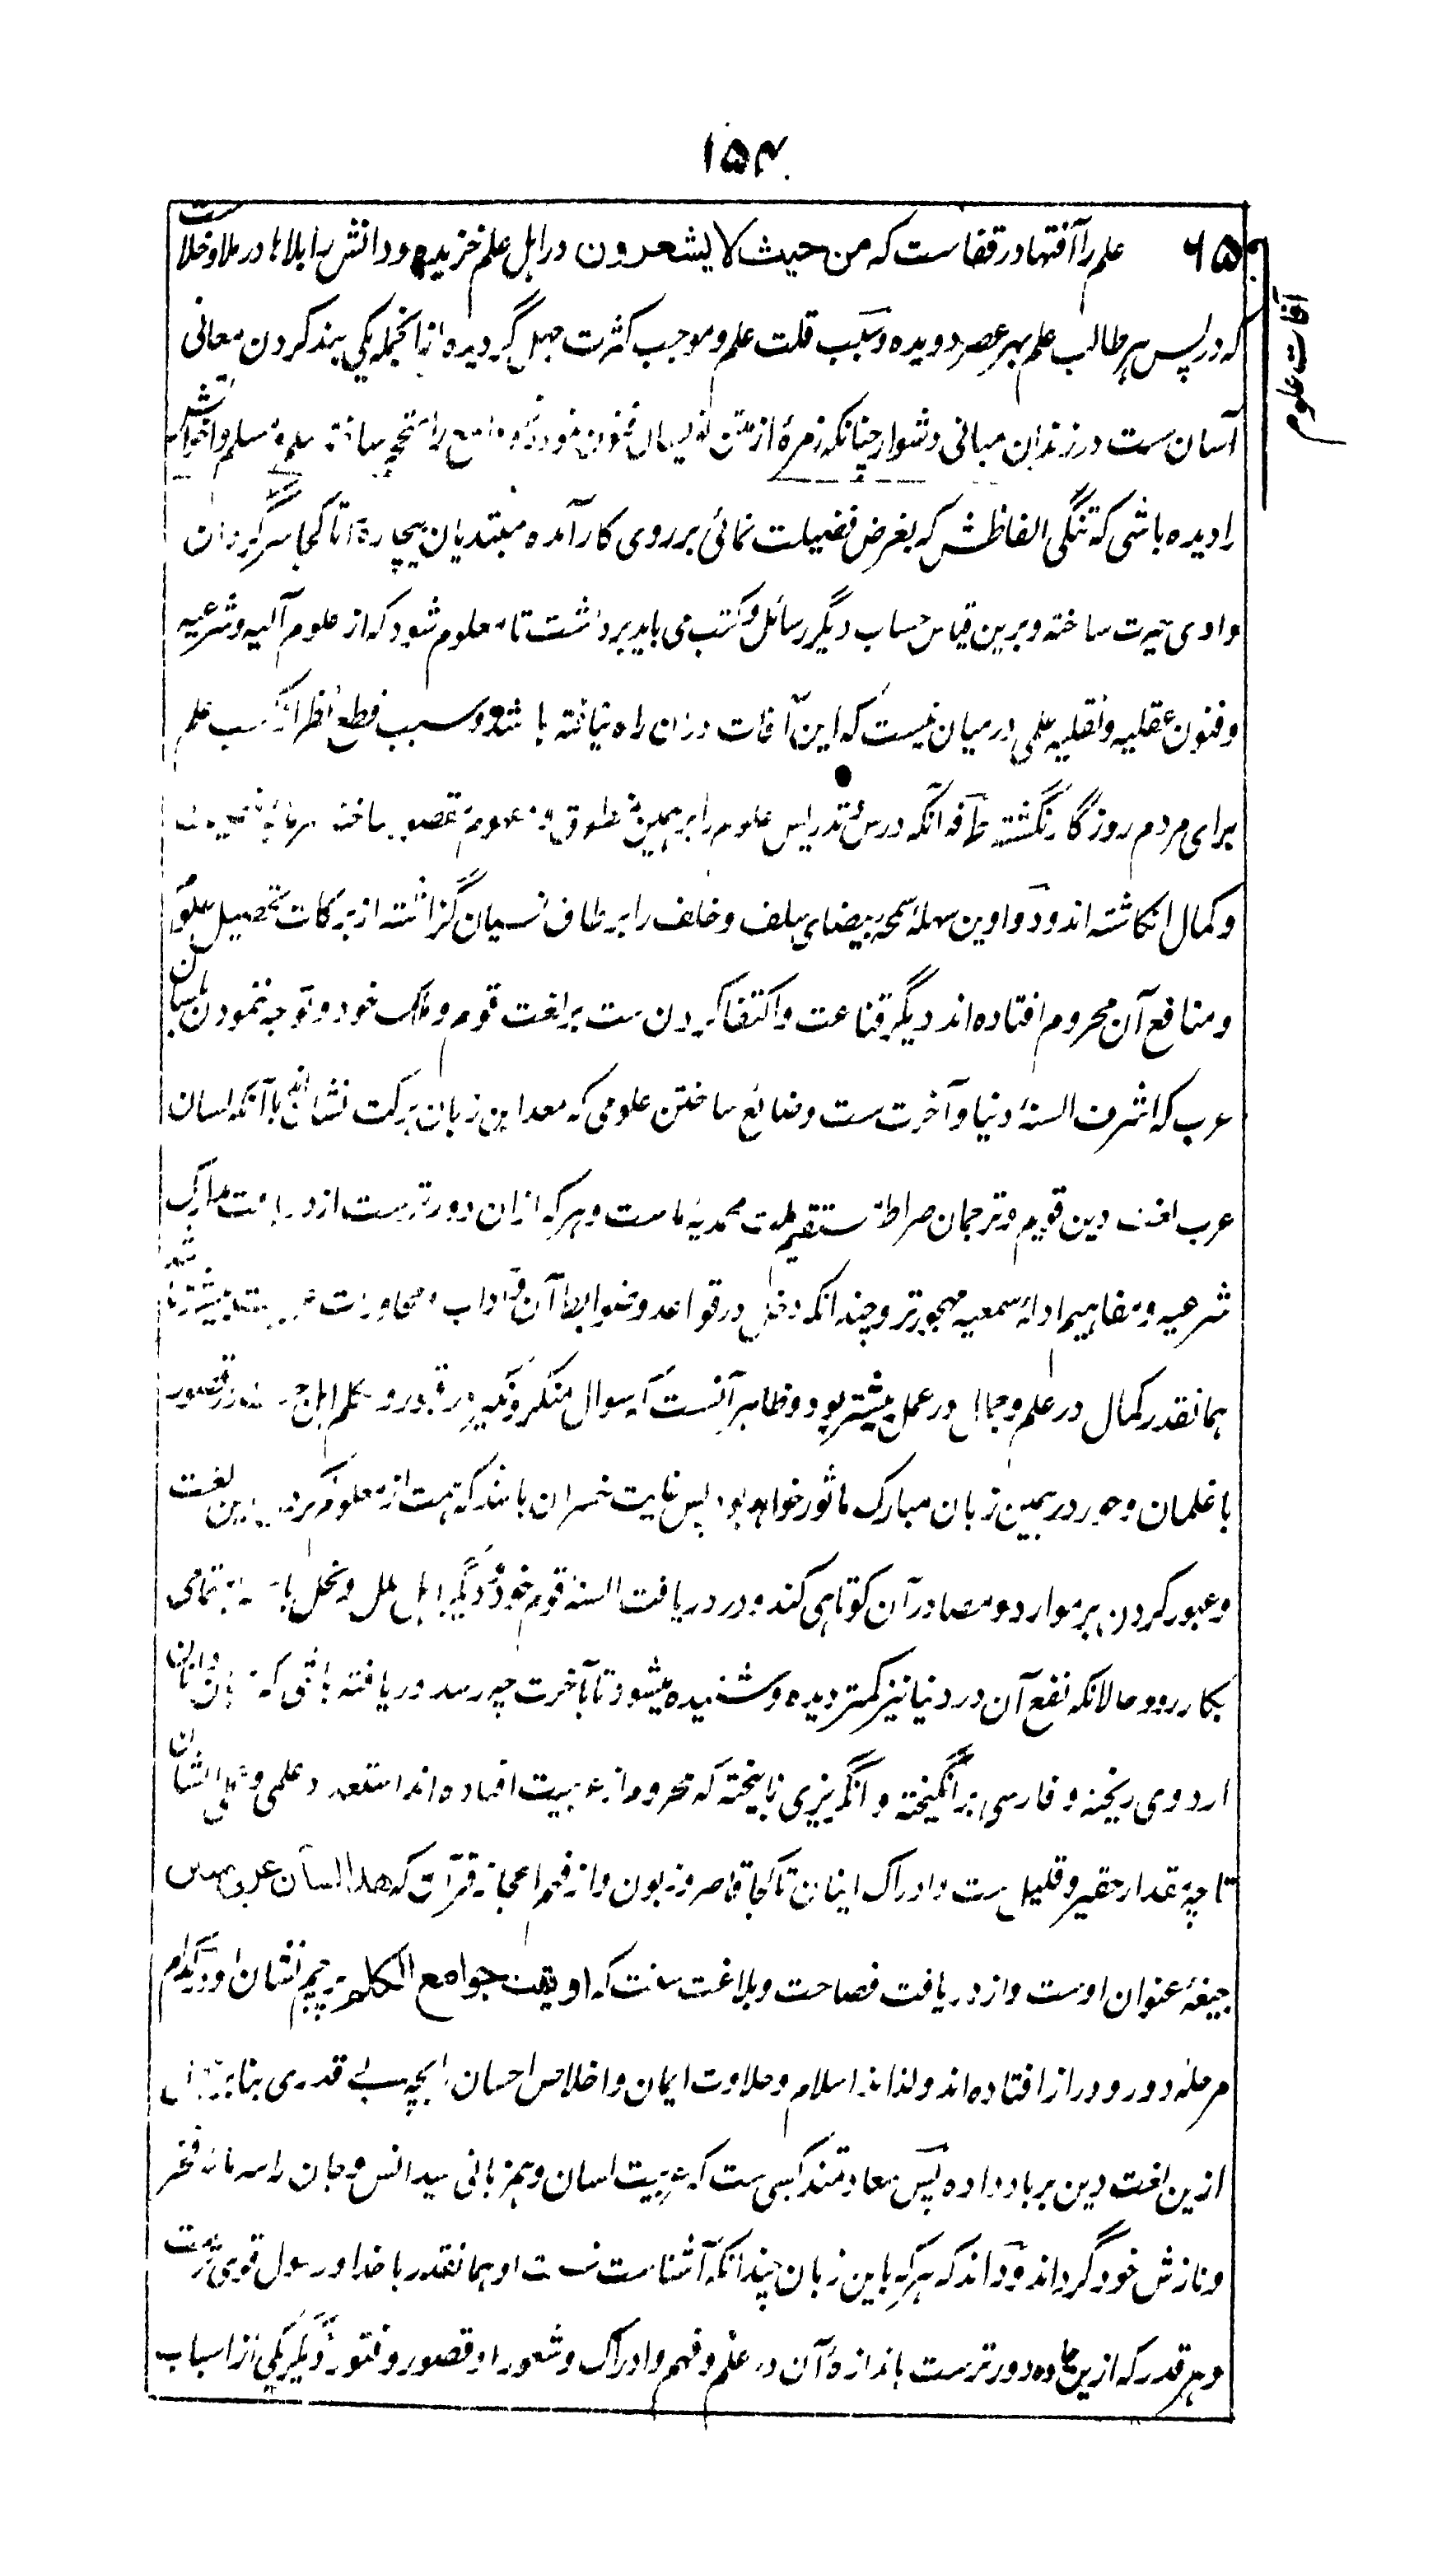 ۱۵۴
آفات علوم
۶۵ علم را آفتها در قفاست که من حیث لا یشعرون در اهل علم خزیده و دانش را بلاها در ملا و خلاست
که در پس هر طالب علم بهر عصر دویده و سبب قلت علم و موجب کثرت جهل گردیده ازانجمله یکی بند کردن معانی
آسان ست در زندان مبانی دشوار چنانکه زمرهٔ از متن نویسان فنون سلم و مسلم و اخواتش
را دیده باشی که تنگی الفاظش که بغرض فضیلت نمائی بر روی کار آمده مبتدیان بیچاره را تا کجا سرگردان
وادی حیرت ساخته و برین قیاس حساب دیگر رسائل و کتب می باید برداشت تا معلوم شود که از علوم آلیه و شرعیه
و فنون عقلیه و نقلیه علمی در میان نیست که این آفات در ان راه نیافته باشد و سبب قطع نظر از کسب علم
برای مردم روزگار نگشته طرفه آنکه درس و تدریس علوم را بر همین منطوق و مفهوم مقصور ساخته سرمایهٔ فضیلت
و کمال انگاشته اند و دواوین سهلهٔ سمحهٔ بیضای سلف و خلف را بر طاق نسیان گزاشته از برکات تحصیل علوم
و منافع آن محروم افتاده اند دیگر قناعت و اکتفا کردن ست بر لغت قوم و ملک خود و توجه ننمودن بلسان
عرب که اشرف السنهٔ دنیا و آخرت ست و ضائع ساختن علومی که معد این زبان برکت نشان اند با آنکه لسان
عرب لغت دین قویم و ترجمان صراط مستقیم ملت محمدیهٔ ماست و هر که ازان دورترست از دریافت مدارک
شرعیه و مفاهیم ادلهٔ سمعیه مهجورتر و چندانکه دخل در قواعد و ضوابط آن و آداب و محاورات عربیت بیشتر باشد
همانقدر کمال در علم و جمال در عمل بیشتر بود و ظاهر آنست که سوال منکر و نکیر در قبور و تکلم اهل جنت در قصور
با غلمان و حور در همین زبان مبارک ماثور خواهد بود پس غایت خسران باشد که همت از معلوم کردن این لغت
و عبور کردن بر موارد و مصادر آن کوتاهی کند و در دریافت السنهٔ قوم خود و دیگر اهل ملل و نحل بتمامی
بکار رود و حالانکه نفع آن در دنیا نیز کمتر دیده و شنیده میشود تا بآخرت چه رسد و دریافته باشی که زبان دانان
اردوی ریخته و فارسی برانگیخته و انگریزی ناپخته که محروم از عربیت افتاده اند استعداد علمی و عملی ایشان
تا چه مقدار حقیر و قلیل ست و ادراک اینان تا کجا قاصر و زبون و از فهم اعجاز قرآن که هذا لسان عربی مبین
جیغهٔ عنوان اوست و از دریافت فصاحت و بلاغت سنت که اوتیت جوامع الکلم پرچم نشان او در کدام
مرحله دور و دراز افتاده اند و لذائذ اسلام و حلاوت ایمان و اخلاص احسان را بچه بے قدری بنابر
ازین لغت دین برباد داده پس سعادتمند کسی ست که عربیت لسان و همزبانی سید انس و جان را سرمایهٔ فخر
و نازش خود گرداند و داند که هر که باین زبان چندانکه آشناست نسبت او همانقدر با خدا و رسول قوی ترست
و هر قدر که ازین جاده دورترست باندازهٔ آن در علم و فهم و ادراک و شعور او قصور و فتور دیگر یکی از اسباب